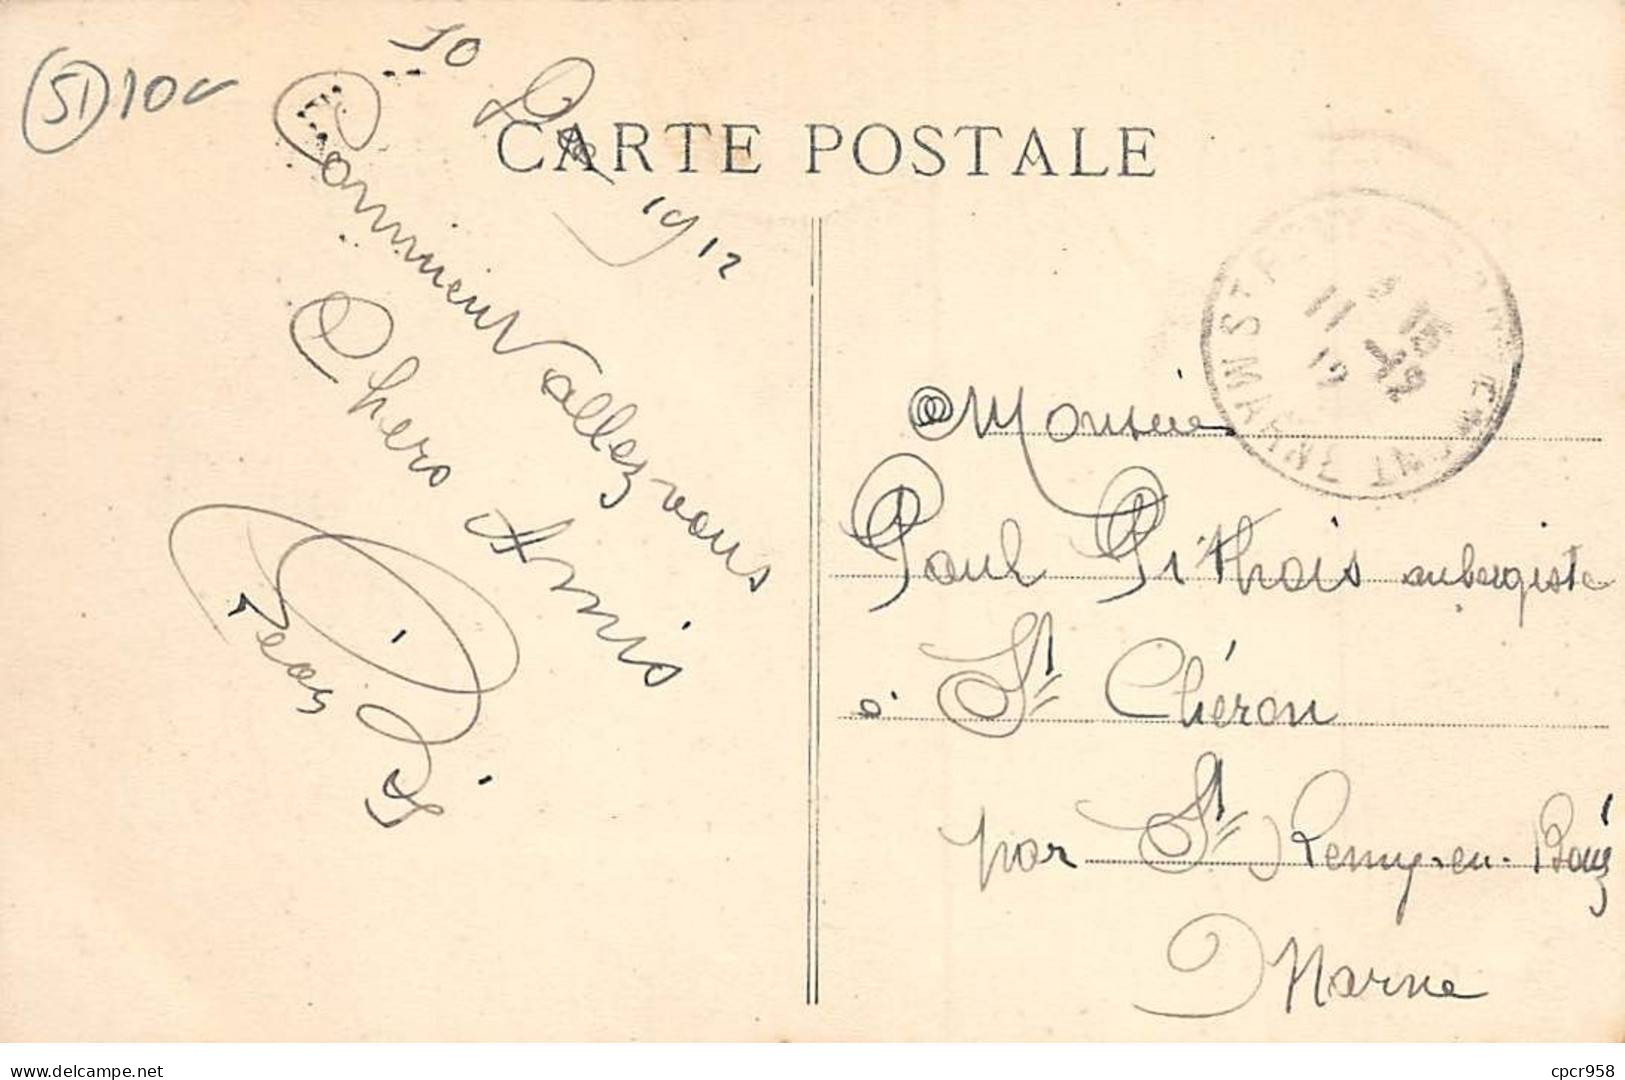 51 10
10 Dec 1912
CARTE POSTALE
Comment allez-vous
Chers Amis
Monsieur
Paul Pithois aubergiste
à St Chéron
par St Remy-en-Bouz
Marne
MARNE
11 -12
12
www.delcampe.net
cpcr958